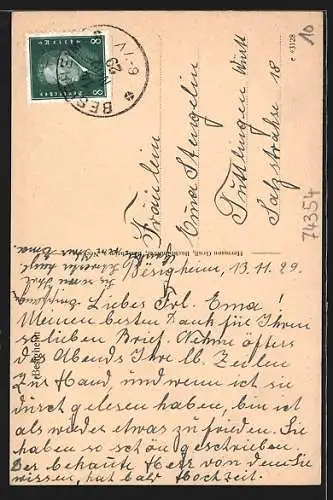 Fräulein
Ema Stengelin
Tuttlingen Württ
Salzstraße 18
c 93128
10
74354
Besigheim, 13. 11. 29.
Liebes Frl. Ema!
Meinen besten Dank für Ihren
so lieben Brief. Nehme öfters
des Abends Ihre lb. Zeilen
zur Hand, und wenn ich sie
durchgelesen haben, bin ich
als wieder etwas zufrieden. Sie
haben so schön geschrieben.
Der bekannte Herr von dem Sie
wissen, hat bald Hochzeit.
Besigheim
8 8
Deutsches